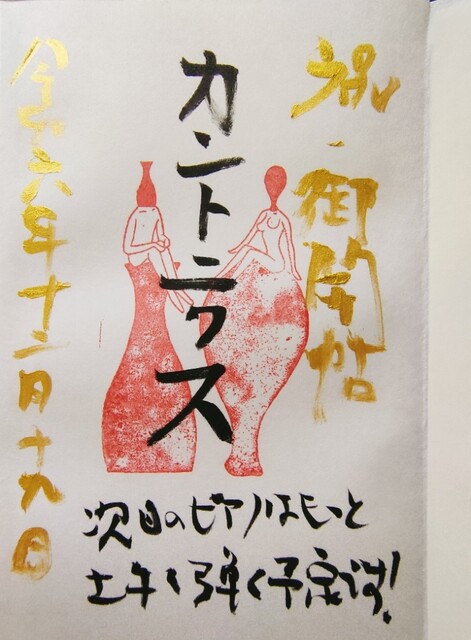 祝・御開帖
カントニクス
令和六年十二月十九日
次回のピアノはもっと
上手く弾く予定です!